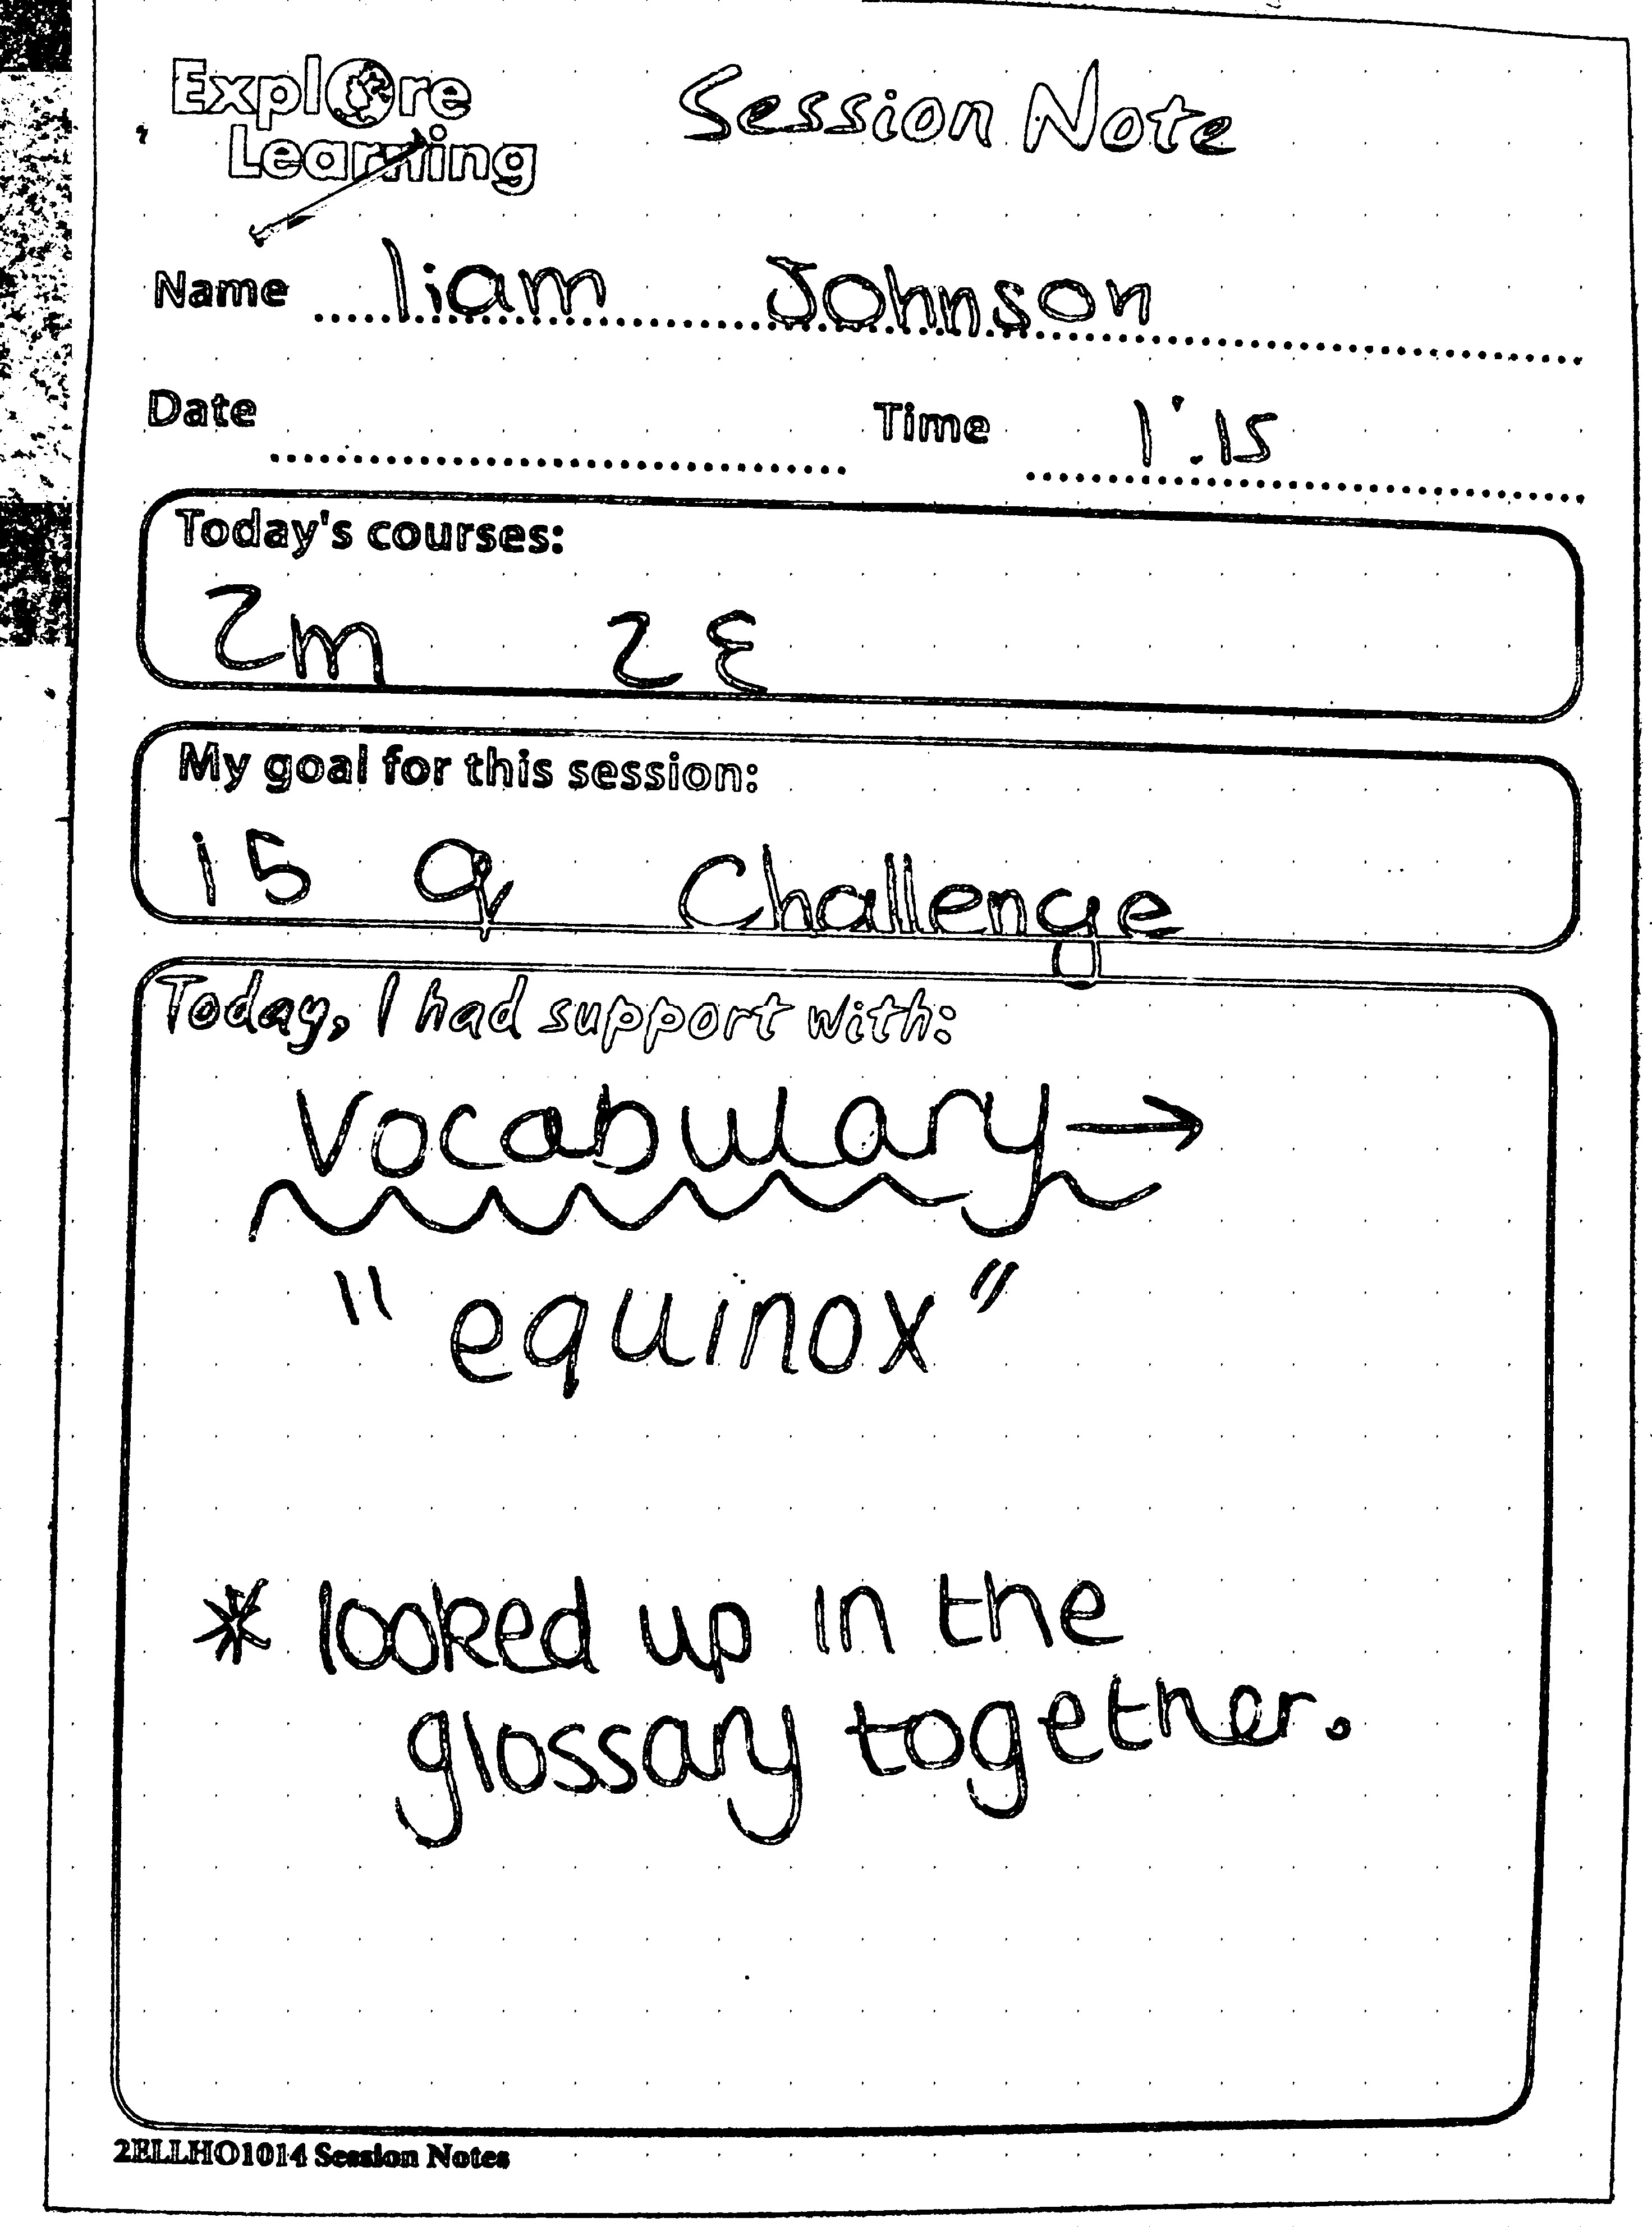 Explore
Learning
Session Note
Name liam Johnson
Date Time 1:15
Today's courses:
2m 2E
My goal for this session:
15 q Challenge
Today, I had support with:
Vocabulary →
"equinox"
* looked up in the
glossary together.
2ELLHO1014 Session Notes